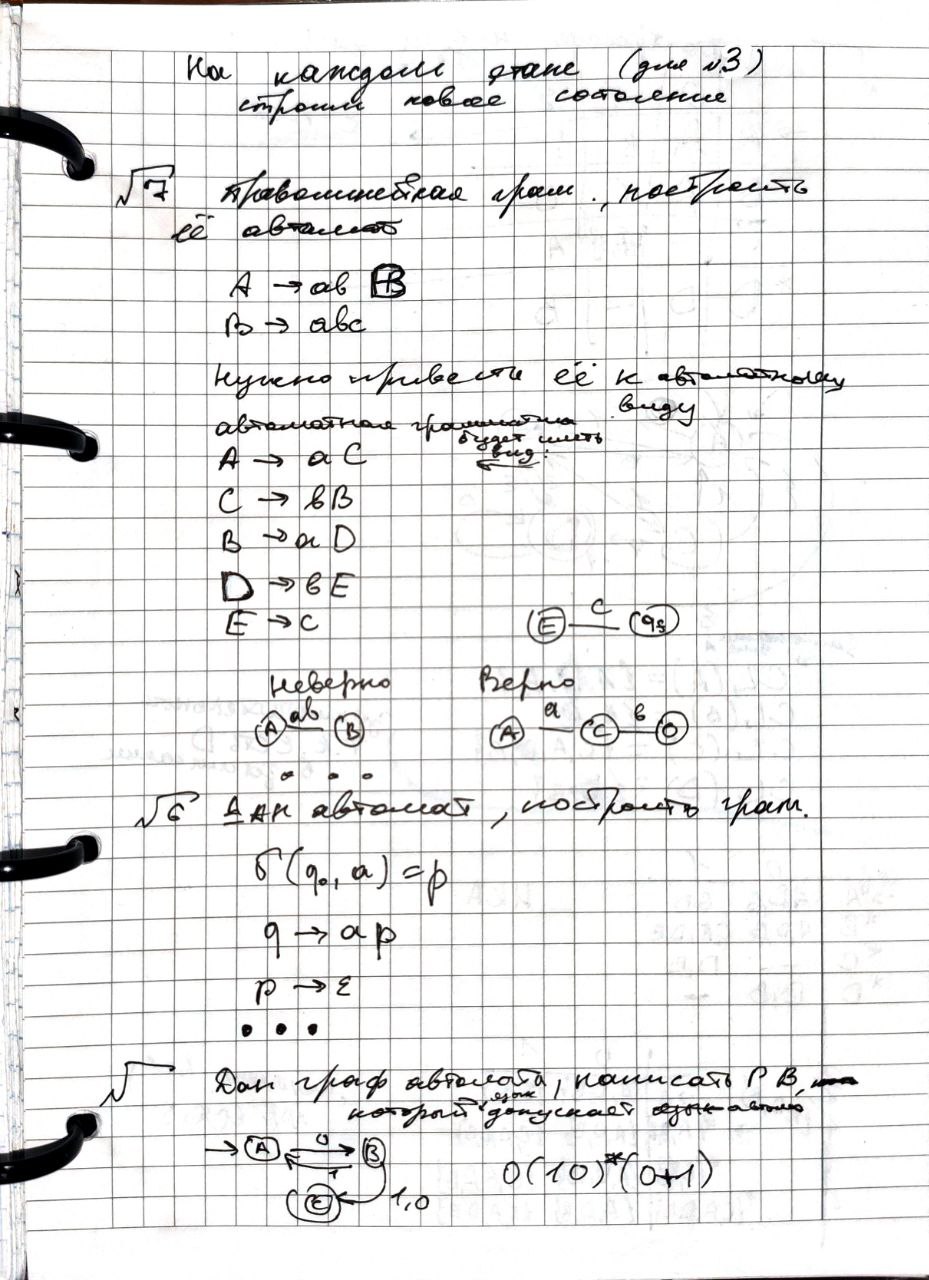 На каждом этапе (для №3)
строим новое состояние
√7 Праволинейная грам., построить
её автомат
A → ab B
B → abc
Нужно привести её к автоматному
виду
автоматная грамматика
будет иметь
вид:
A → aC
C → bB
B → aD
D → bE
E → c
E c qs
Неверно Верно
A ab B A a C b O
. . .
√6 Дан автомат, построить грам.
δ(q₀, a) = p
q → ap
p → ε
. . .
√ Дан граф автомата, написать РВ,
который допускает язык
→ A 0 B
1
E 1,0
0(10)*(0+1)